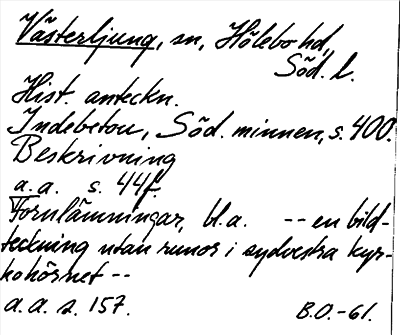 Västerljung, sn, Hölebo hd,
Söd. l.
Hist. anteckn.
Indebetou, Söd. minnen, s. 400.
Beskrivning
a.a. s. 44f.
Fornlämningar, bl.a. -- en bild-
teckning utan runor i sydvestra kyr-
kohörnet --
a.a. s. 157.
B.O.-61.